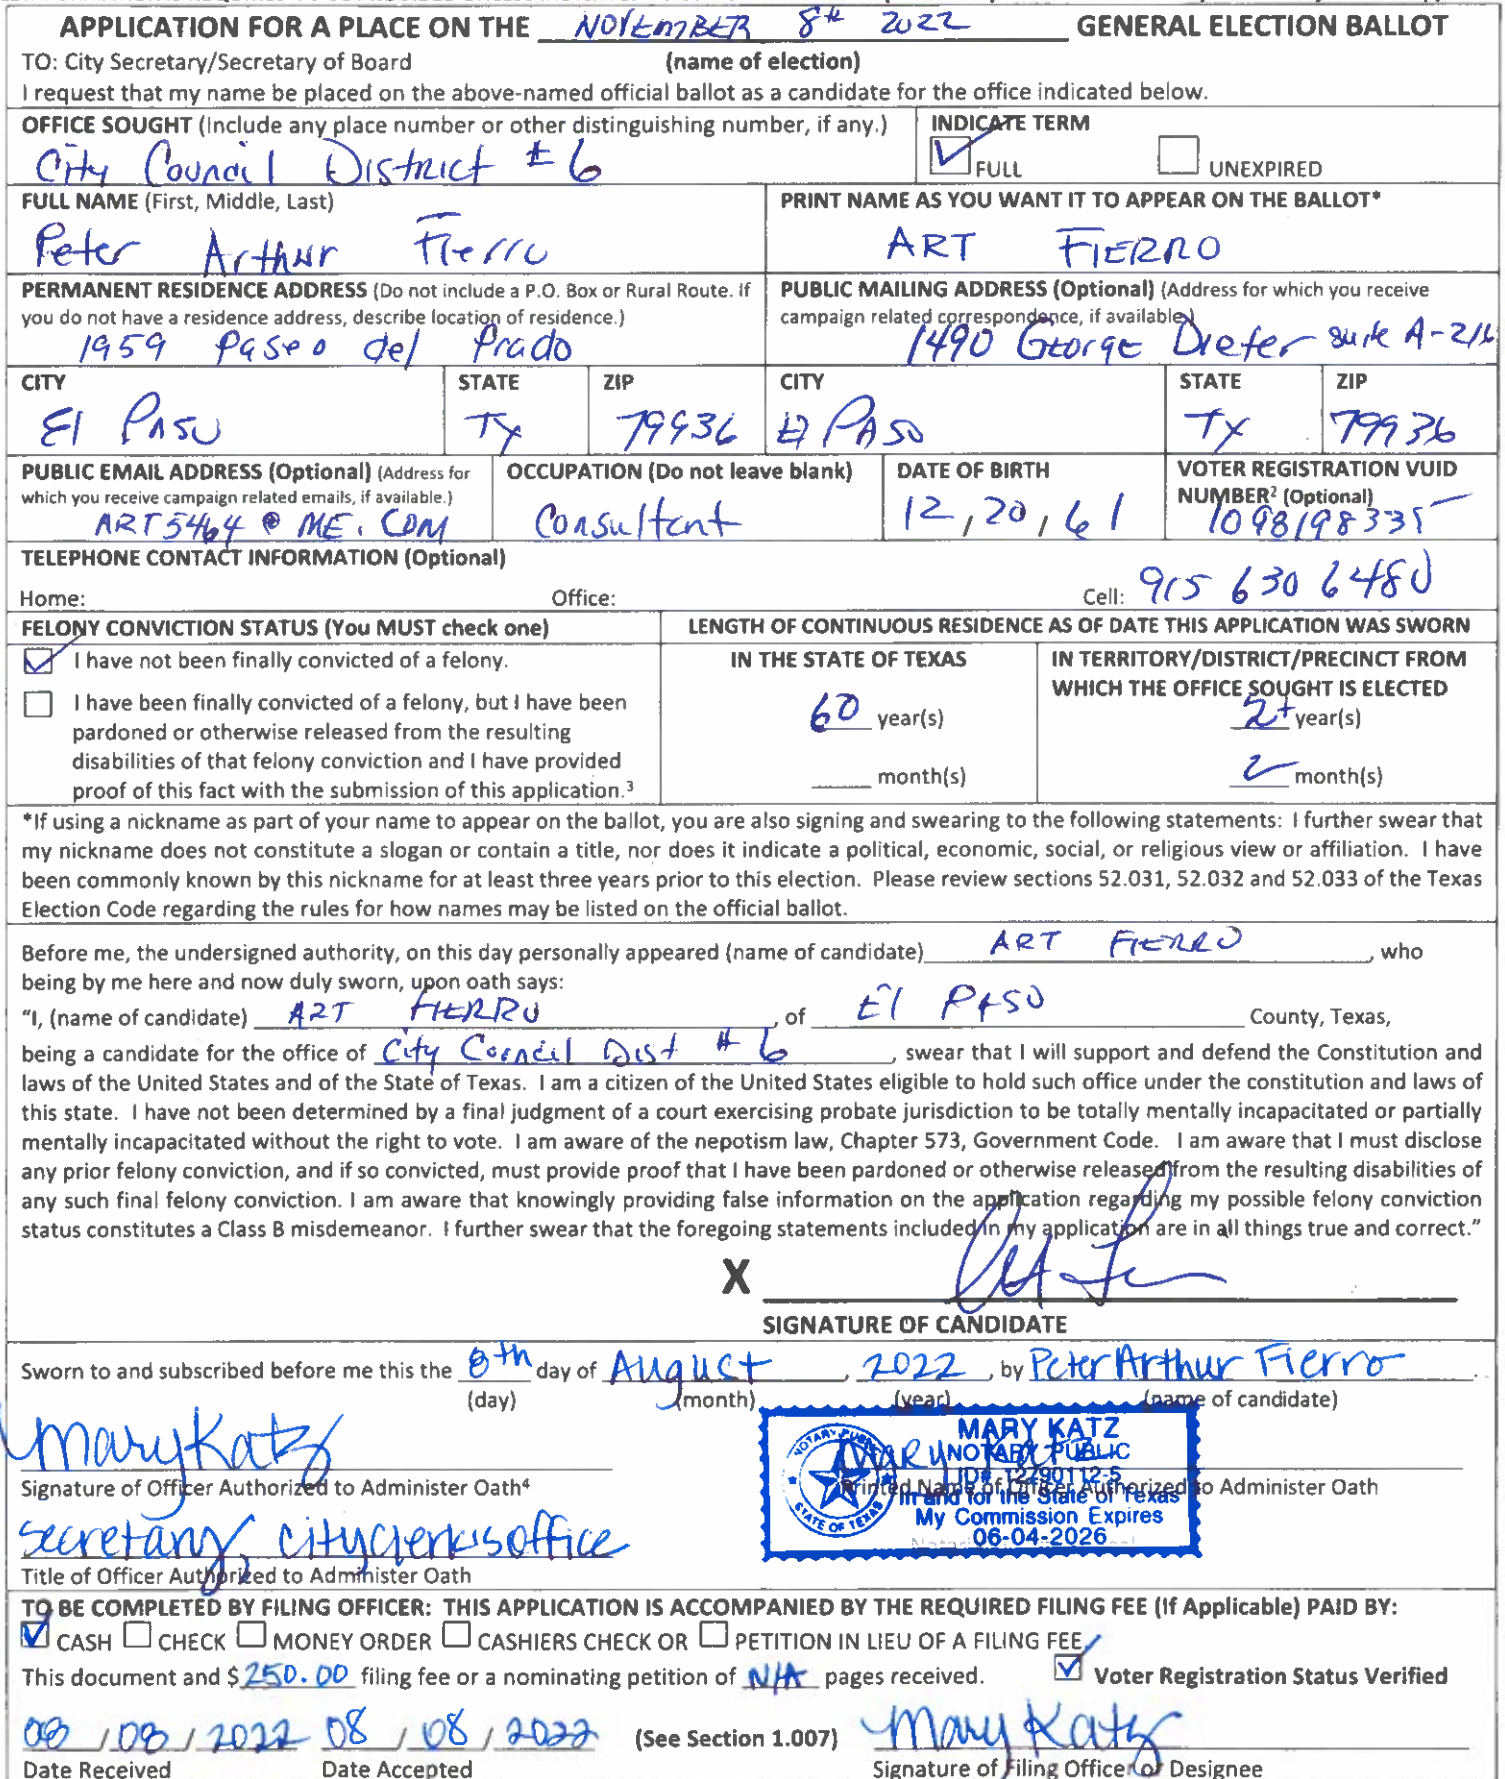 APPLICATION FOR A PLACE ON THE NOVEMBER 8th 2022 GENERAL ELECTION BALLOT
TO: City Secretary/Secretary of Board (name of election)
I request that my name be placed on the above-named official ballot as a candidate for the office indicated below.
OFFICE SOUGHT (Include any place number or other distinguishing number, if any.)
City Council District #6
INDICATE TERM
FULL UNEXPIRED
FULL NAME (First, Middle, Last)
Peter Arthur Fierro
PRINT NAME AS YOU WANT IT TO APPEAR ON THE BALLOT*
ART FIERRO
PERMANENT RESIDENCE ADDRESS (Do not include a P.O. Box or Rural Route. If
you do not have a residence address, describe location of residence.)
1959 Paseo del Prado
PUBLIC MAILING ADDRESS (Optional) (Address for which you receive
campaign related correspondence, if available.)
1490 George Dieter suite A-216
CITY STATE ZIP CITY STATE ZIP
El PASO TX 79936 El PASO TX 79936
PUBLIC EMAIL ADDRESS (Optional) (Address for
which you receive campaign related emails, if available.)
ART5464@ME.COM
OCCUPATION (Do not leave blank)
Consultant
DATE OF BIRTH
12, 20, 61
VOTER REGISTRATION VUID
NUMBER² (Optional)
1098198335
TELEPHONE CONTACT INFORMATION (Optional)
Home: Office: Cell: 915 630 6480
FELONY CONVICTION STATUS (You MUST check one)
I have not been finally convicted of a felony.
I have been finally convicted of a felony, but I have been
pardoned or otherwise released from the resulting
disabilities of that felony conviction and I have provided
proof of this fact with the submission of this application.³
LENGTH OF CONTINUOUS RESIDENCE AS OF DATE THIS APPLICATION WAS SWORN
IN THE STATE OF TEXAS
60 year(s)
month(s)
IN TERRITORY/DISTRICT/PRECINCT FROM
WHICH THE OFFICE SOUGHT IS ELECTED
2+ year(s)
2 month(s)
*If using a nickname as part of your name to appear on the ballot, you are also signing and swearing to the following statements: I further swear that
my nickname does not constitute a slogan or contain a title, nor does it indicate a political, economic, social, or religious view or affiliation. I have
been commonly known by this nickname for at least three years prior to this election. Please review sections 52.031, 52.032 and 52.033 of the Texas
Election Code regarding the rules for how names may be listed on the official ballot.
Before me, the undersigned authority, on this day personally appeared (name of candidate) ART FIERRO, who
being by me here and now duly sworn, upon oath says:
"I, (name of candidate) ART FIERRO, of El PASO County, Texas,
being a candidate for the office of City Council Dist #6, swear that I will support and defend the Constitution and
laws of the United States and of the State of Texas. I am a citizen of the United States eligible to hold such office under the constitution and laws of
this state. I have not been determined by a final judgment of a court exercising probate jurisdiction to be totally mentally incapacitated or partially
mentally incapacitated without the right to vote. I am aware of the nepotism law, Chapter 573, Government Code. I am aware that I must disclose
any prior felony conviction, and if so convicted, must provide proof that I have been pardoned or otherwise released from the resulting disabilities of
any such final felony conviction. I am aware that knowingly providing false information on the application regarding my possible felony conviction
status constitutes a Class B misdemeanor. I further swear that the foregoing statements included in my application are in all things true and correct."
X
SIGNATURE OF CANDIDATE
Sworn to and subscribed before me this the 8th day of August, 2022, by Peter Arthur Fierro.
(day) (month) (year) (name of candidate)
Mary Katz
Signature of Officer Authorized to Administer Oath⁴
Printed Name of Officer Authorized to Administer Oath
MARY KATZ
NOTARY PUBLIC
ID# 12790112-5
In and for the State of Texas
My Commission Expires
06-04-2026
NOTARY PUBLIC
STATE OF TEXAS
secretary, city clerk's office
Title of Officer Authorized to Administer Oath
TO BE COMPLETED BY FILING OFFICER: THIS APPLICATION IS ACCOMPANIED BY THE REQUIRED FILING FEE (If Applicable) PAID BY:
CASH CHECK MONEY ORDER CASHIERS CHECK OR PETITION IN LIEU OF A FILING FEE.
This document and $250.00 filing fee or a nominating petition of N/A pages received. Voter Registration Status Verified
08/08/2022 08/08/2022 (See Section 1.007) Mary Katz
Date Received Date Accepted Signature of Filing Officer or Designee